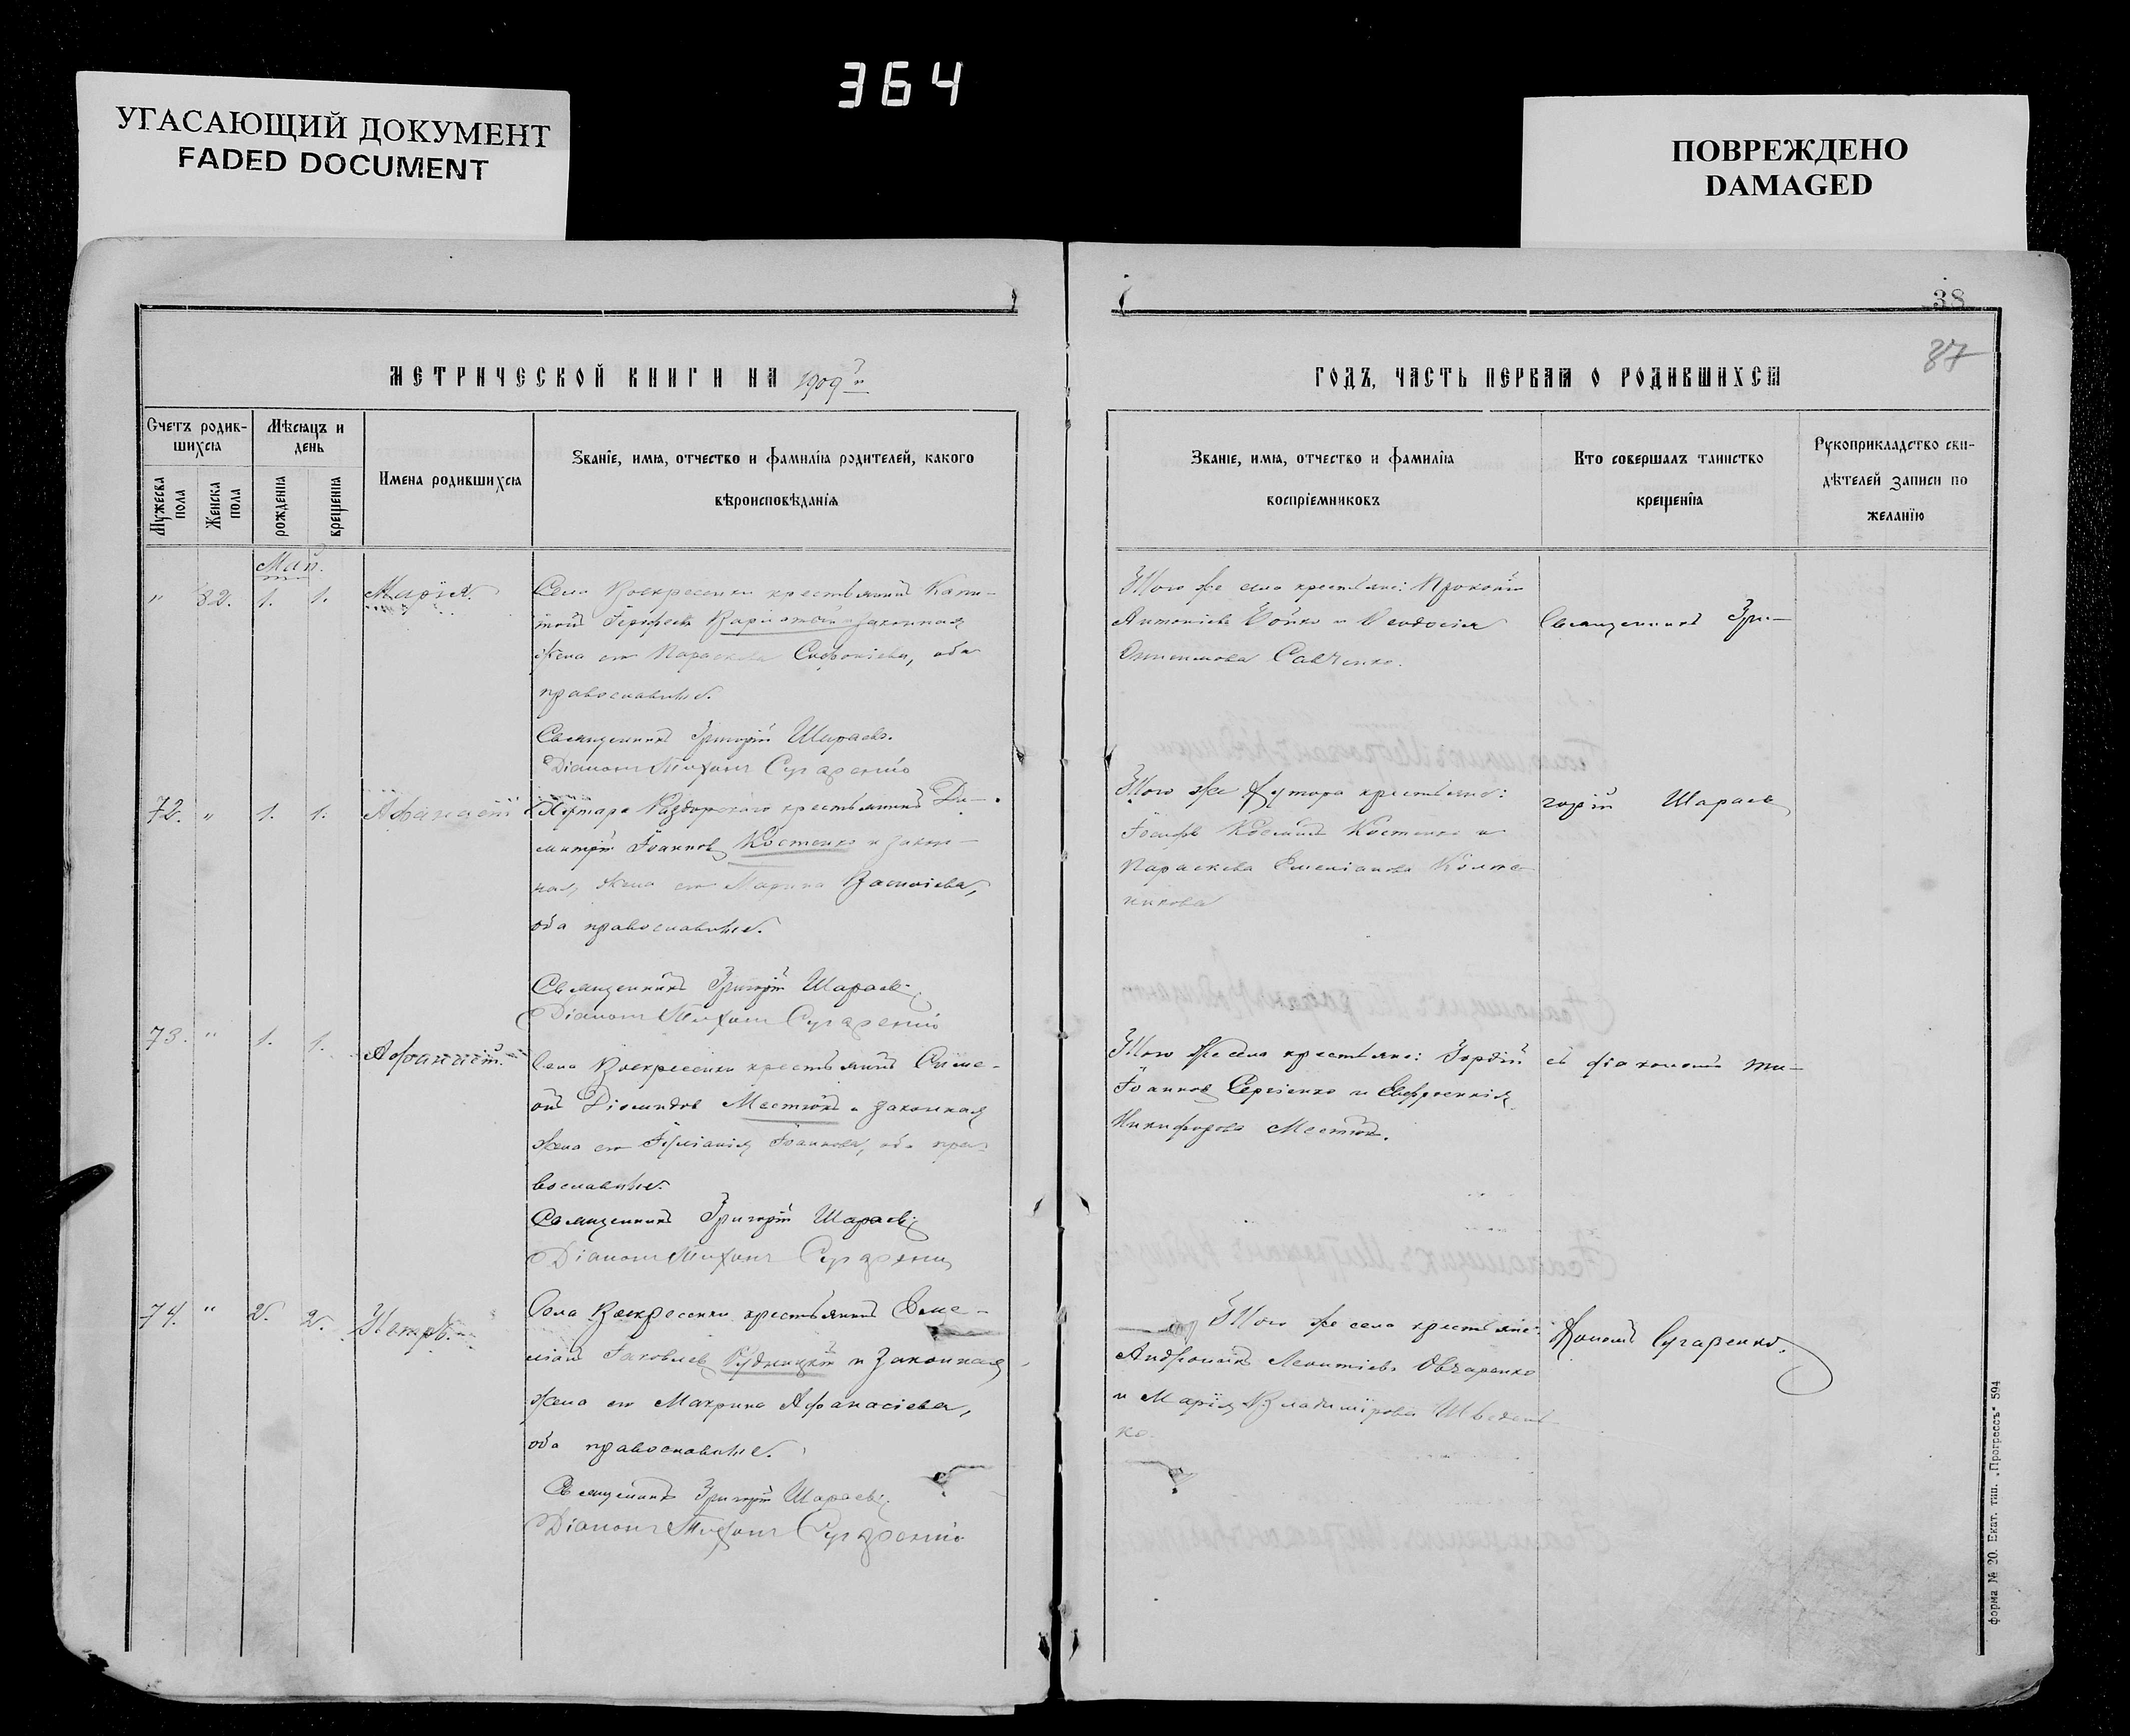 364
УГАСАЮЩИЙ ДОКУМЕНТ
FADED DOCUMENT
ПОВРЕЖДЕНО
DAMAGED
38
87
МЕТРИЧЕСКОЙ КНИГИ НА 1909 й
ГОДЪ, ЧАСТЬ ПЕРВАЯ О РОДИВШИХСЯ
Счетъ родив-
шихся
Мужеска пола
Женска пола
Мѣсяцъ и день
рожденія
крещенія
Имена родившихся
Званіе, имя, отчество и фамилія родителей, какого
вѣроисповѣданія
Званіе, имя, отчество и фамилія
воспріемниковъ
Кто совершалъ таинство
крещенія
Рукоприкладство сви-
дѣтелей записи по
желанію
Май.
" 82. 1. 1. Марія.
Села Воскресенки крестьянинъ Капи-
тонъ и законная
жена его Параскева Софоніева, оба
православные.
Священникъ Григорій Шараевъ.
Діаконъ Тихонъ Сугаренко
Того же села крестьяне: Прокопій
Антоніевъ Бойко и Ѳеодосія
Савченко.
Священникъ Гри-
72. " 1. 1. Аѳанасій
Хутора крестьянинъ Ди-
митрій Іоанновъ Костенко и закон-
ная жена его Марина Васильева,
оба православные.
Священникъ Григорій Шараевъ
Діаконъ Тихонъ Сугаренко
Того же хутора крестьяне:
Іосифъ Костенко и
Параскева Емеліанова
никова
горій Шараевъ
73. " 1. 1. Аѳанасій.
Села Воскресенки крестьянинъ Симе-
онъ Діомидовъ и законная
жена его Іуліанія Іоаннова, оба пра-
вославные.
Священникъ Григорій Шараевъ
Діаконъ Тихонъ Сугаренко
Того же села крестьяне: Гордій
Іоанновъ Сергіенко и Евфросинія
Никифорова
съ діакономъ Ти-
74. " 2. 2. Петръ.
Села Воскресенки крестьянинъ Еме-
ліанъ Іаковлевъ Рудницкій и законная
жена его Макрина Аѳанасіева,
оба православные.
Священникъ Григорій Шараевъ
Діаконъ Тихонъ Сугаренко
Того же села крестьяне:
Андроникъ Леонтіевъ Овчаренко
и Марія Владимірова Шведен-
ко.
хономъ Сугаренко.
Форма № 20. Екат. тип. „Прогрессъ" 594